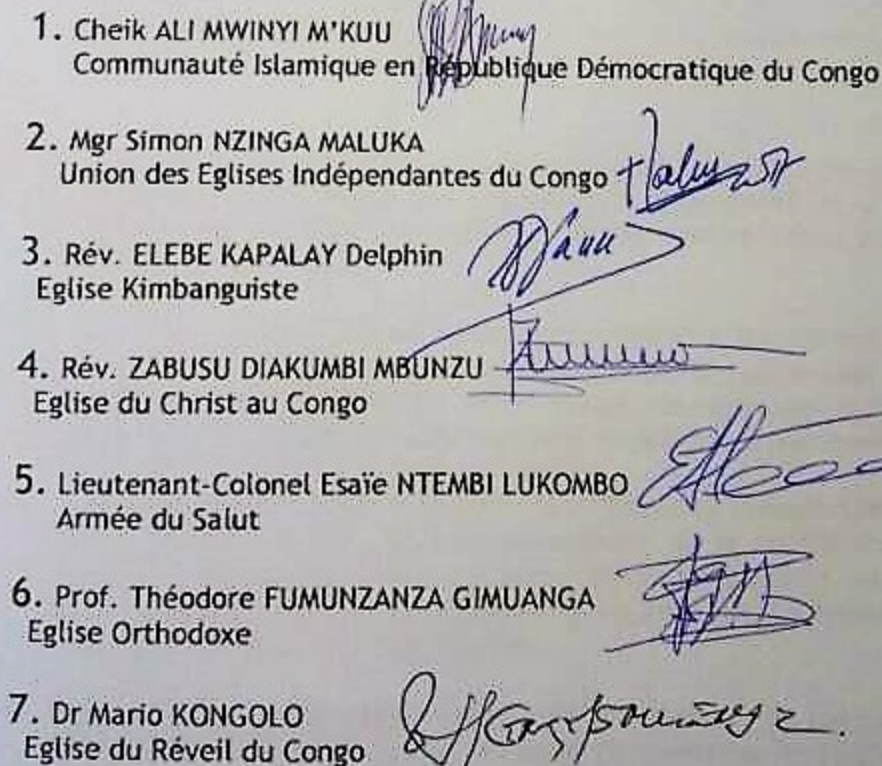 1. Cheik ALI MWINYI M'KUU
Communauté Islamique en République Démocratique du Congo
2. Mgr Simon NZINGA MALUKA
Union des Eglises Indépendantes du Congo
3. Rév. ELEBE KAPALAY Delphin
Eglise Kimbanguiste
4. Rév. ZABUSU DIAKUMBI MBUNZU
Eglise du Christ au Congo
5. Lieutenant-Colonel Esaïe NTEMBI LUKOMBO
Armée du Salut
6. Prof. Théodore FUMUNZANZA GIMUANGA
Eglise Orthodoxe
7. Dr Mario KONGOLO
Eglise du Réveil du Congo